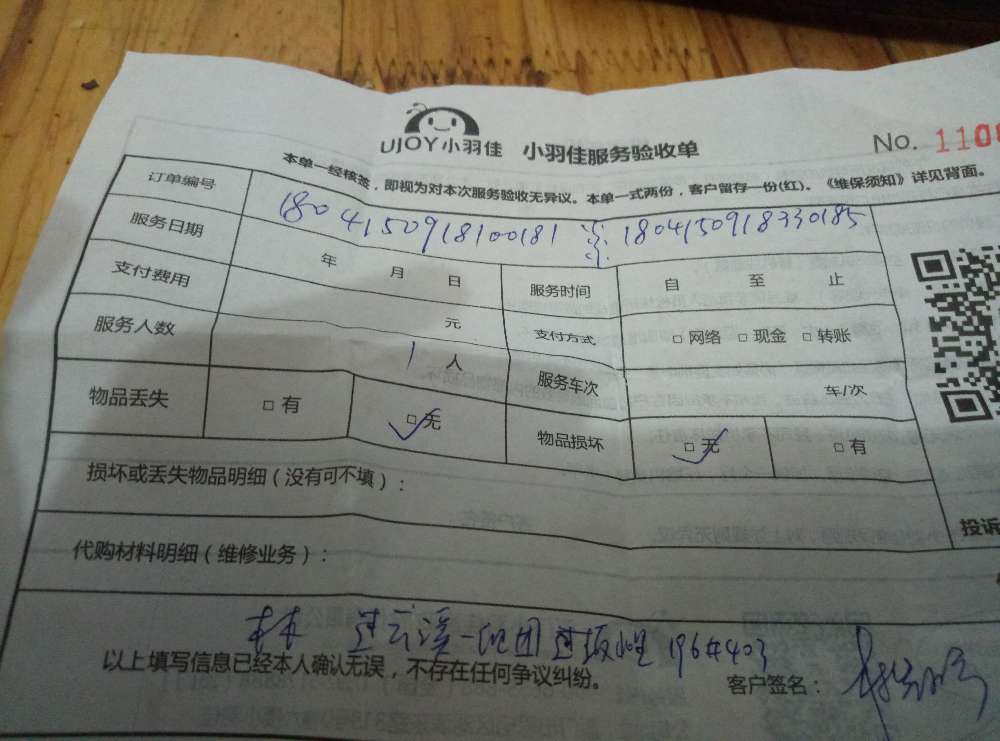 UJOY小羽佳 小羽佳服务验收单 No. 1108
本单一经核签，即视为对本次服务验收无异议。本单一式两份，客户留存一份(红)。《维保须知》详见背面。
订单编号 1804150918100181 1804150918330185
服务日期 年 月 日 服务时间 自 至 止
支付费用 元 支付方式 □ 网络 □ 现金 □ 转账
服务人数 1 人 服务车次 车/次
物品丢失 □ 有 □ 无 物品损坏 □ 无 □ 有
损坏或丢失物品明细（没有可不填）：
投诉
代购材料明细（维修业务）：
过云溪一组团 196#403
以上填写信息已经本人确认无误，不存在任何争议纠纷。 客户签名：